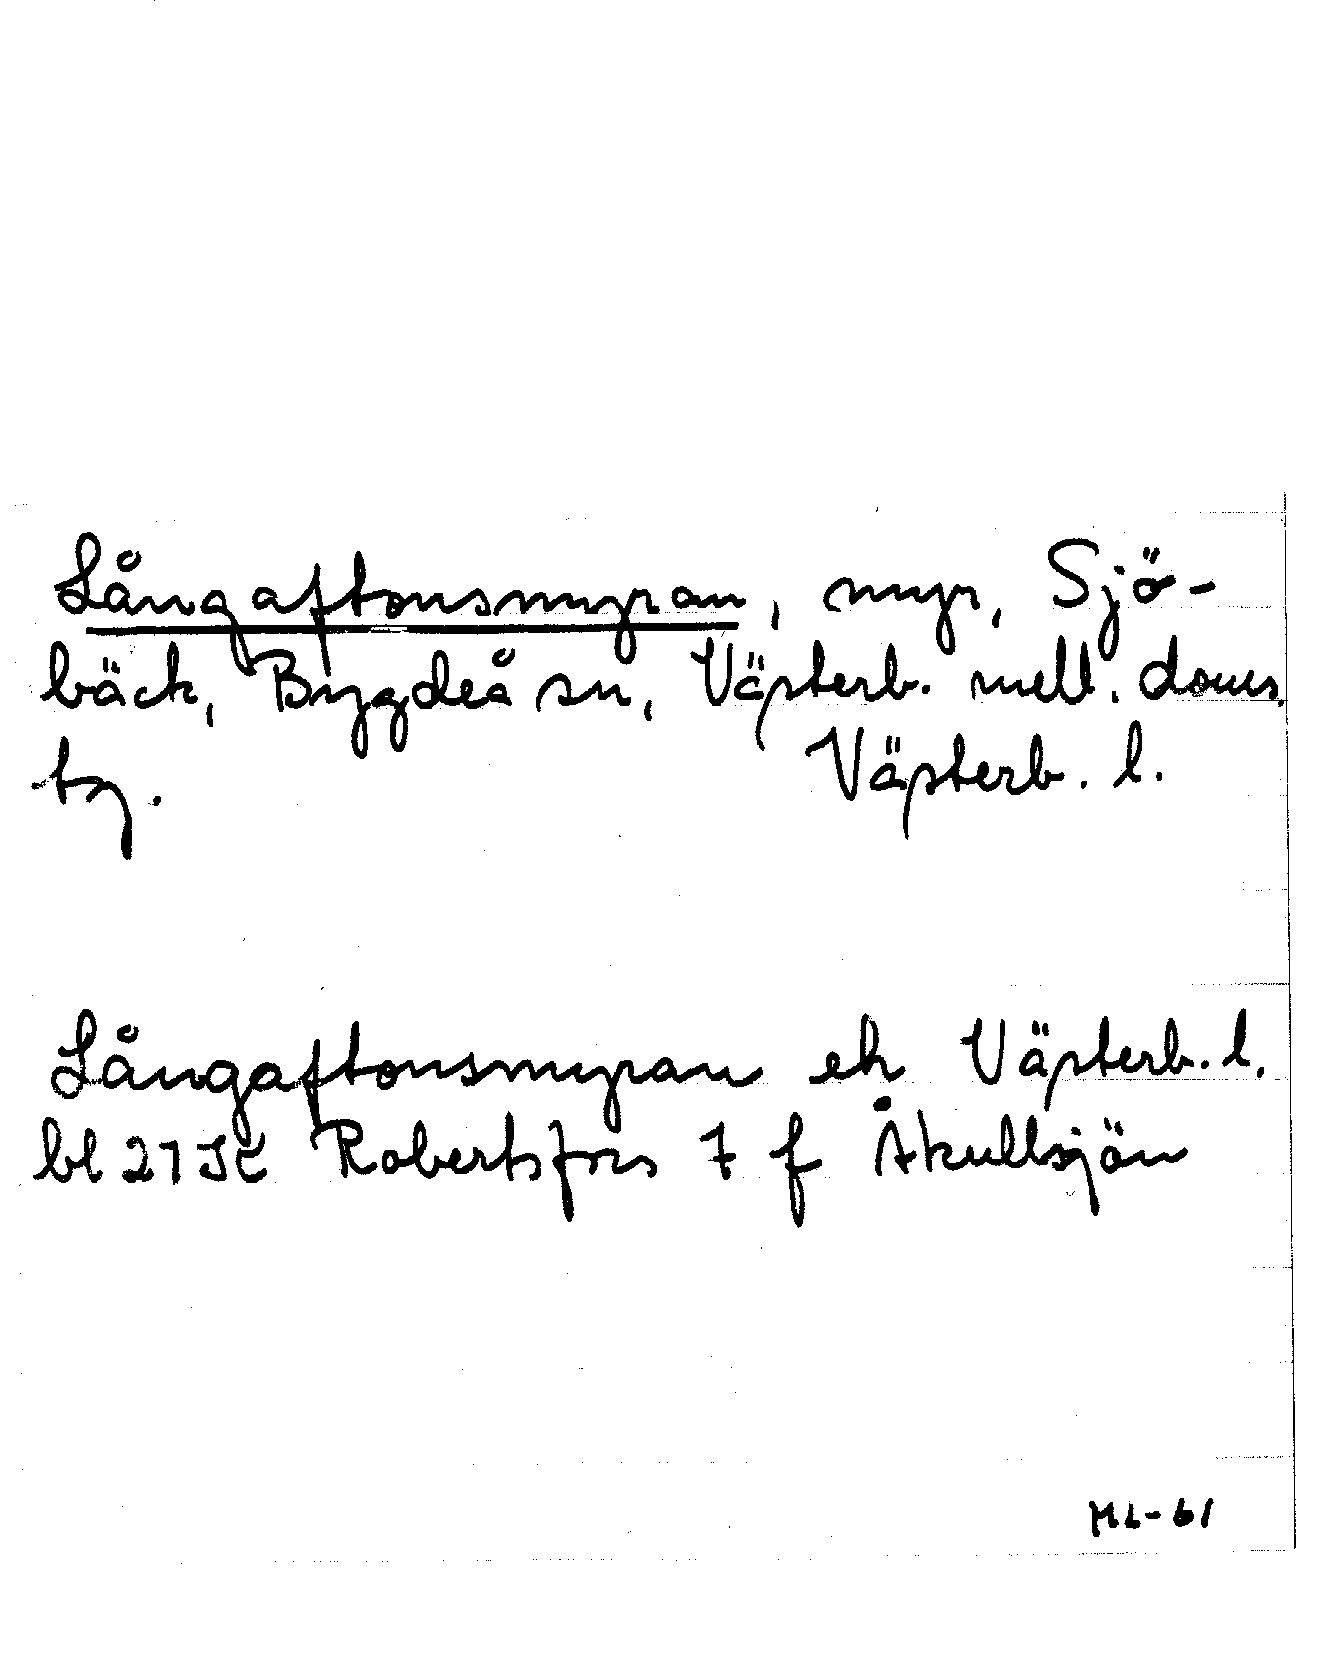 Långaftonsmyran, myr, Sjö-
bäck, Bygdeå sn, Västerb. mell. doms.
tg. Västerb. l.
Långaftonsmyran ek Västerb. l.
bl 21 K Robertsfors 7 f Åkullsjön
ML-61